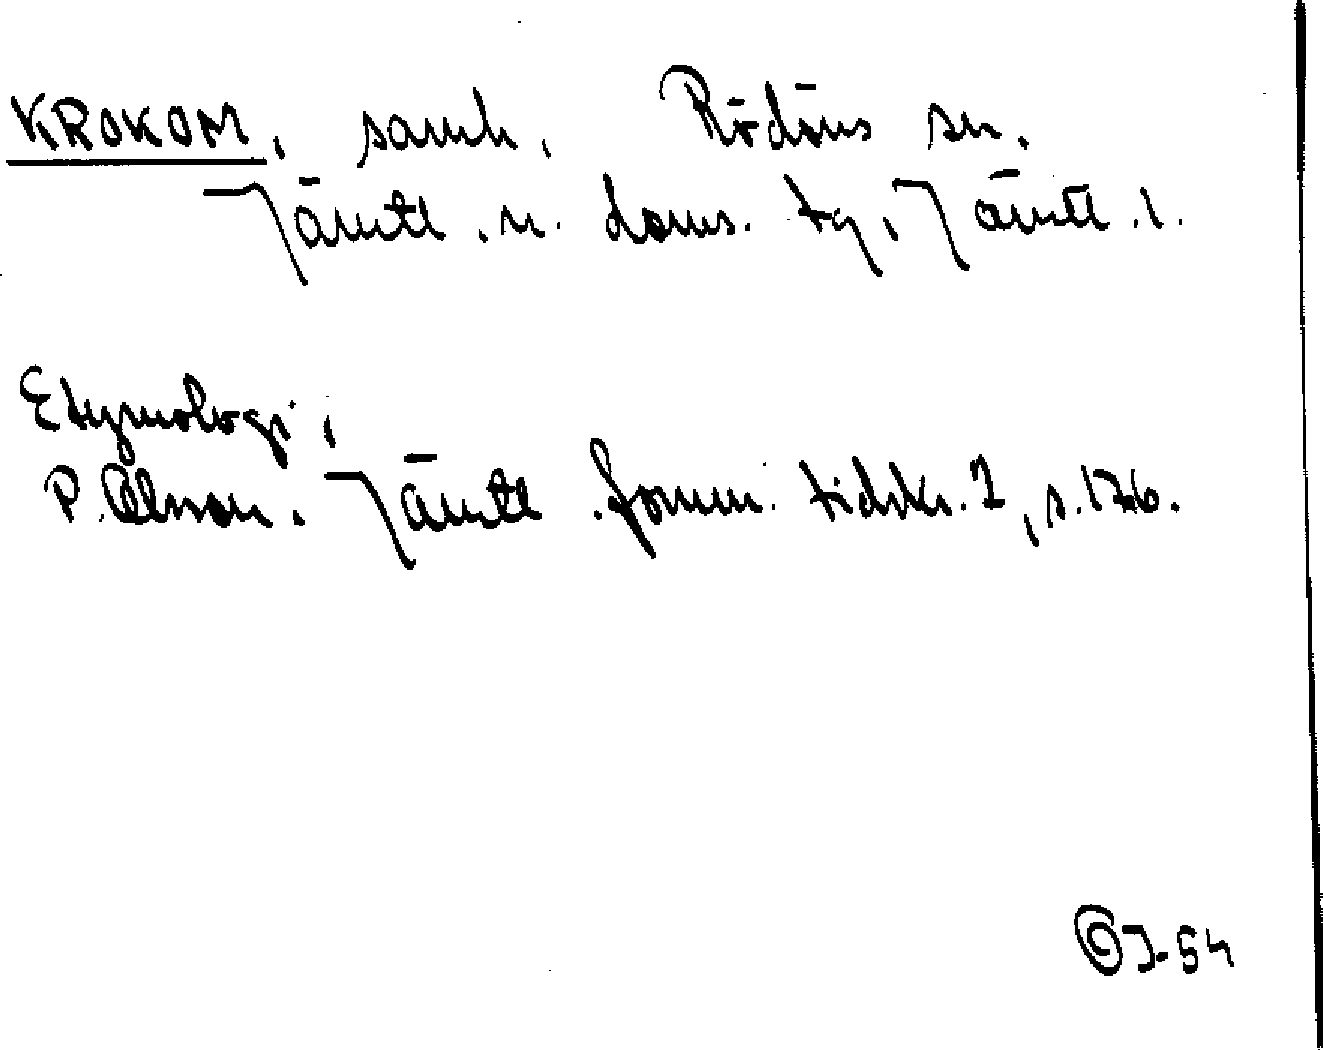 KROKOM, samh, Rödöns sn.
Jämtl. n. doms. tg, Jämtl. l.
Etymologi,
P. Olsson. Jämtl. fornm. tidskr. 2, s. 176.
J-54